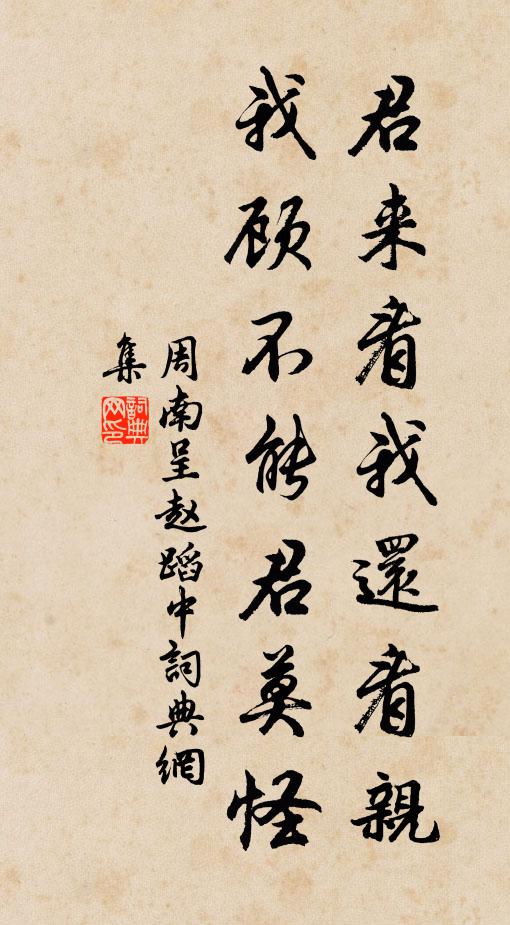 君来看我還看親
我顾不能君莫怪
周南呈赵蹈中詞典網
集
詞典
网印